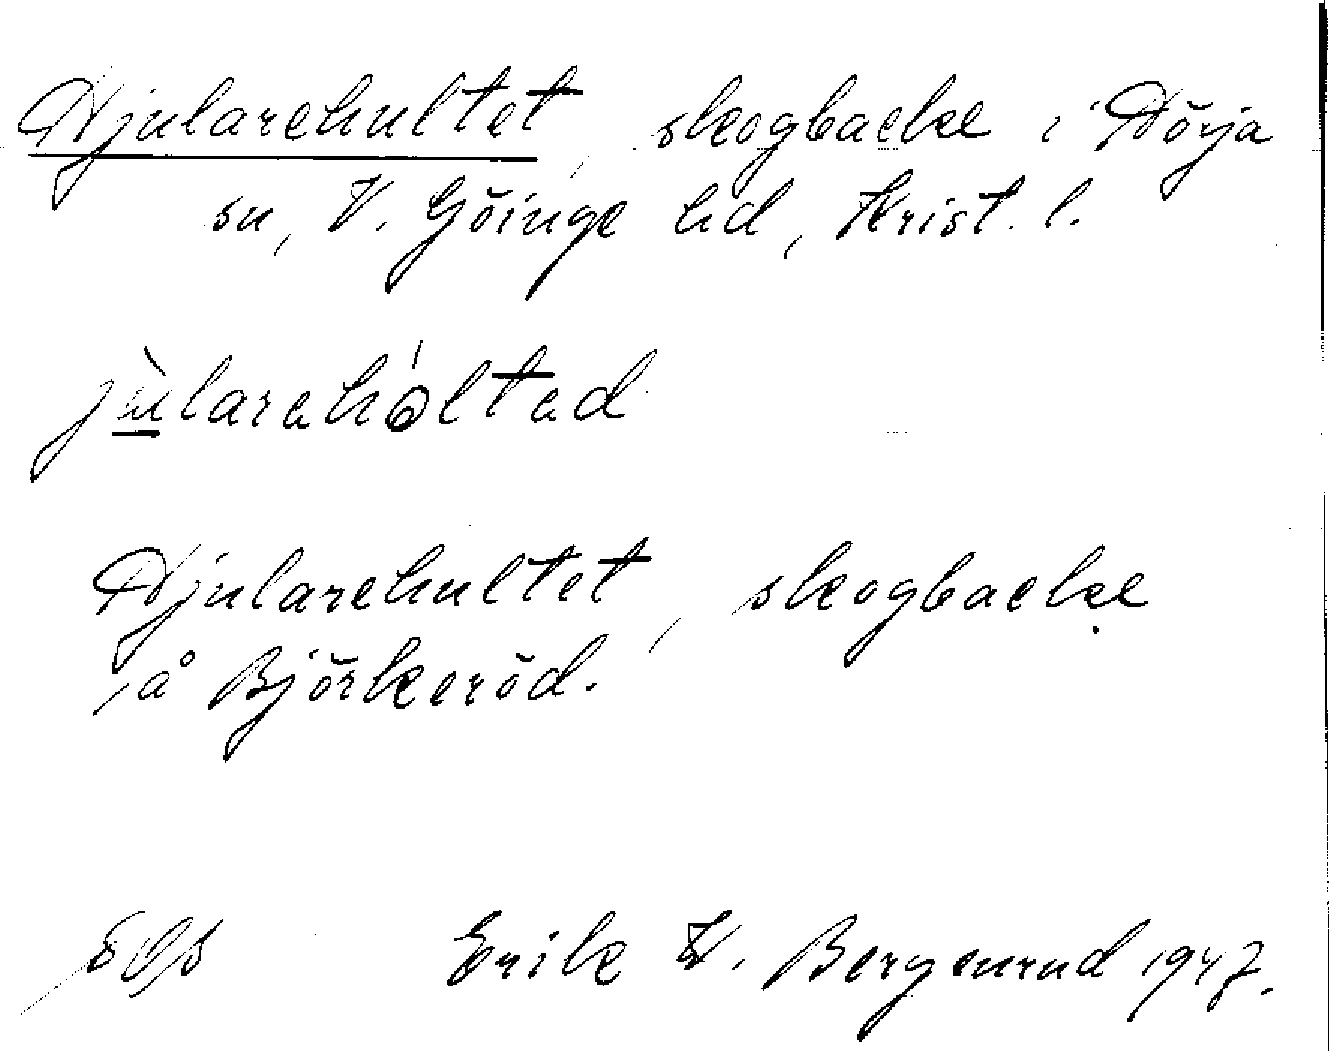 Hjularehultet, skogbacke i Hörja
sn, V. Göinge hd, Krist. l.
jularehòltad
Hjularehultet, skogbacke
å Björkeröd.
Erik W. Bergenrud 1947.